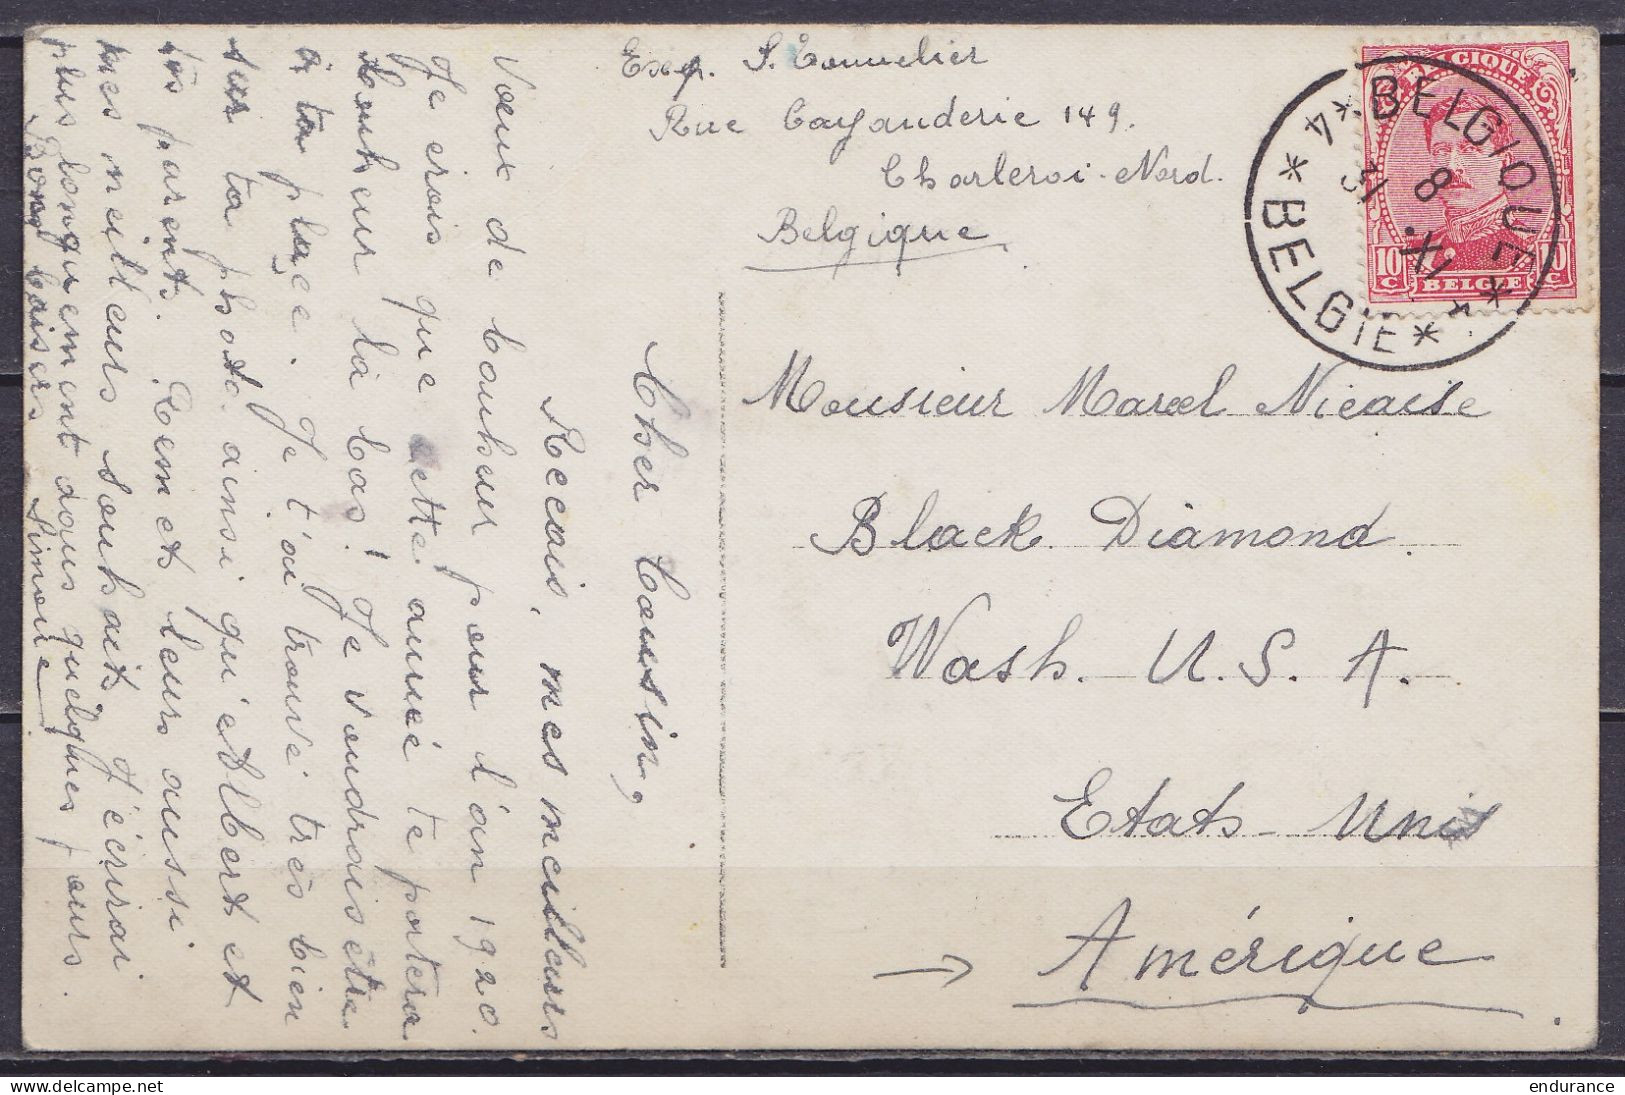 Exp. S. Tonnelier
Rue Cayauderie 149.
Charleroi-Nord.
Belgique
BELGIQUE
10 C
10 C
BELGIE
*BELGIQUE*
4
31
8
XI
*BELGIE*
Monsieur Marcel Nicaise
Black Diamond.
Wash. U.S.A.
Etats-Unis
→ Amérique.
Cher Cousin,
Recois, mes meilleurs
Vœux de bonheur pour l'an 1920.
Je crois que cette année te portera
bonheur là bas! Je voudrais être
à ta place. Je t'ai trouvé très bien
sur ta photo. ainsi qu'Albert et
tes parents. Remet leurs aussi
mes meilleurs souhaits. J'écrirai
plus longuement dans quelques jours.
Bons baisers Simone
endurance